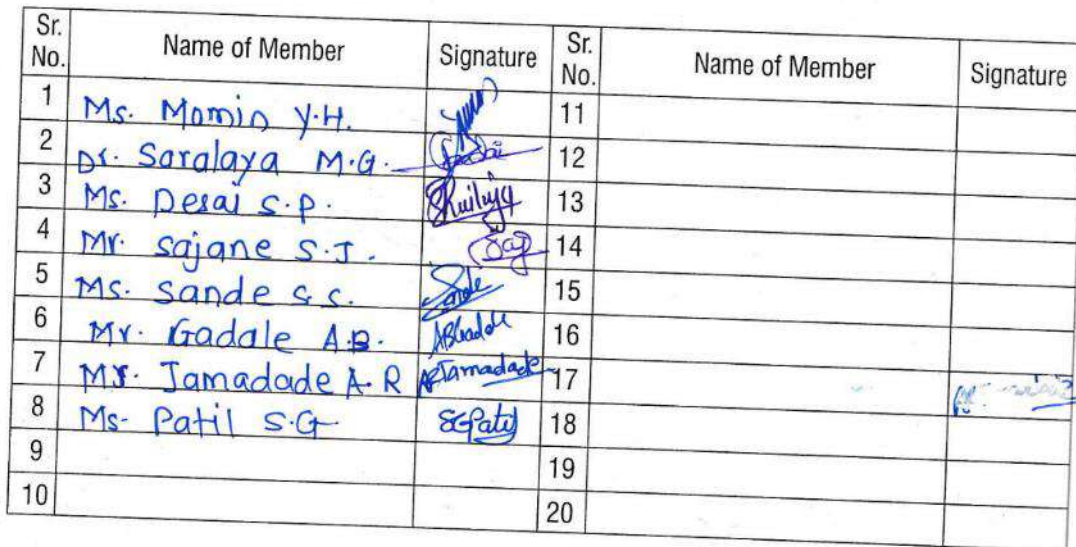 Sr. No. Name of Member Signature Sr. No. Name of Member Signature
1 Ms. Momin Y.H. 11
2 Dr. Saralaya M.G. 12
3 Ms. Desai S.P. 13
4 Mr. Sajane S.J. 14
5 Ms. Sande S.S. Sande 15
6 Mr. Gadale A.B. ABGadale 16
7 Mr. Jamadade A.R ARJamadade 17
8 Ms. Patil S.G SGPatil 18
9 19
10 20